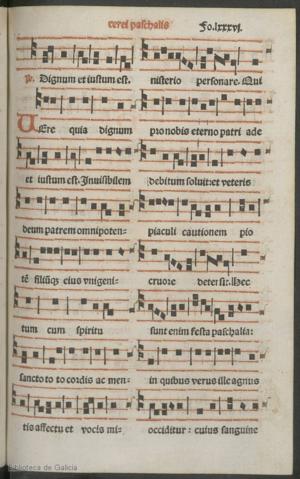 cerei paschalis
Fo.lxxxvj.
R. Dignum et iustum est.
UEre quia dignum
et iustum est. Inuisibilem
deum patrem omnipoten-
tē filiūq; eius vnigeni-
tum cum spiritu
sancto to to cordis ac men-
tis affectu et vocis mi-
nisterio personare. Qui
pro nobis eterno patri ade
debitum soluit: et veteris
piaculi cautionem pio
cruore detersit. Hec
sunt enim festa paschalia:
in quibus verus ille agnus
occiditur: cuius sanguine
Biblioteca de Galicia